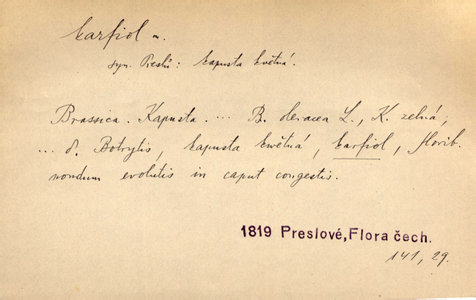 karfiol m.
syn. Preslů: kapusta květná.
Brassica. Kapusta. ... B. oleracea L., K. zelná,
... δ. Botrytis, kapusta kwětná, karfiol, florib.
nondum evolutis in caput congestis.
1819 Preslové, Flora čech.
141, 29.